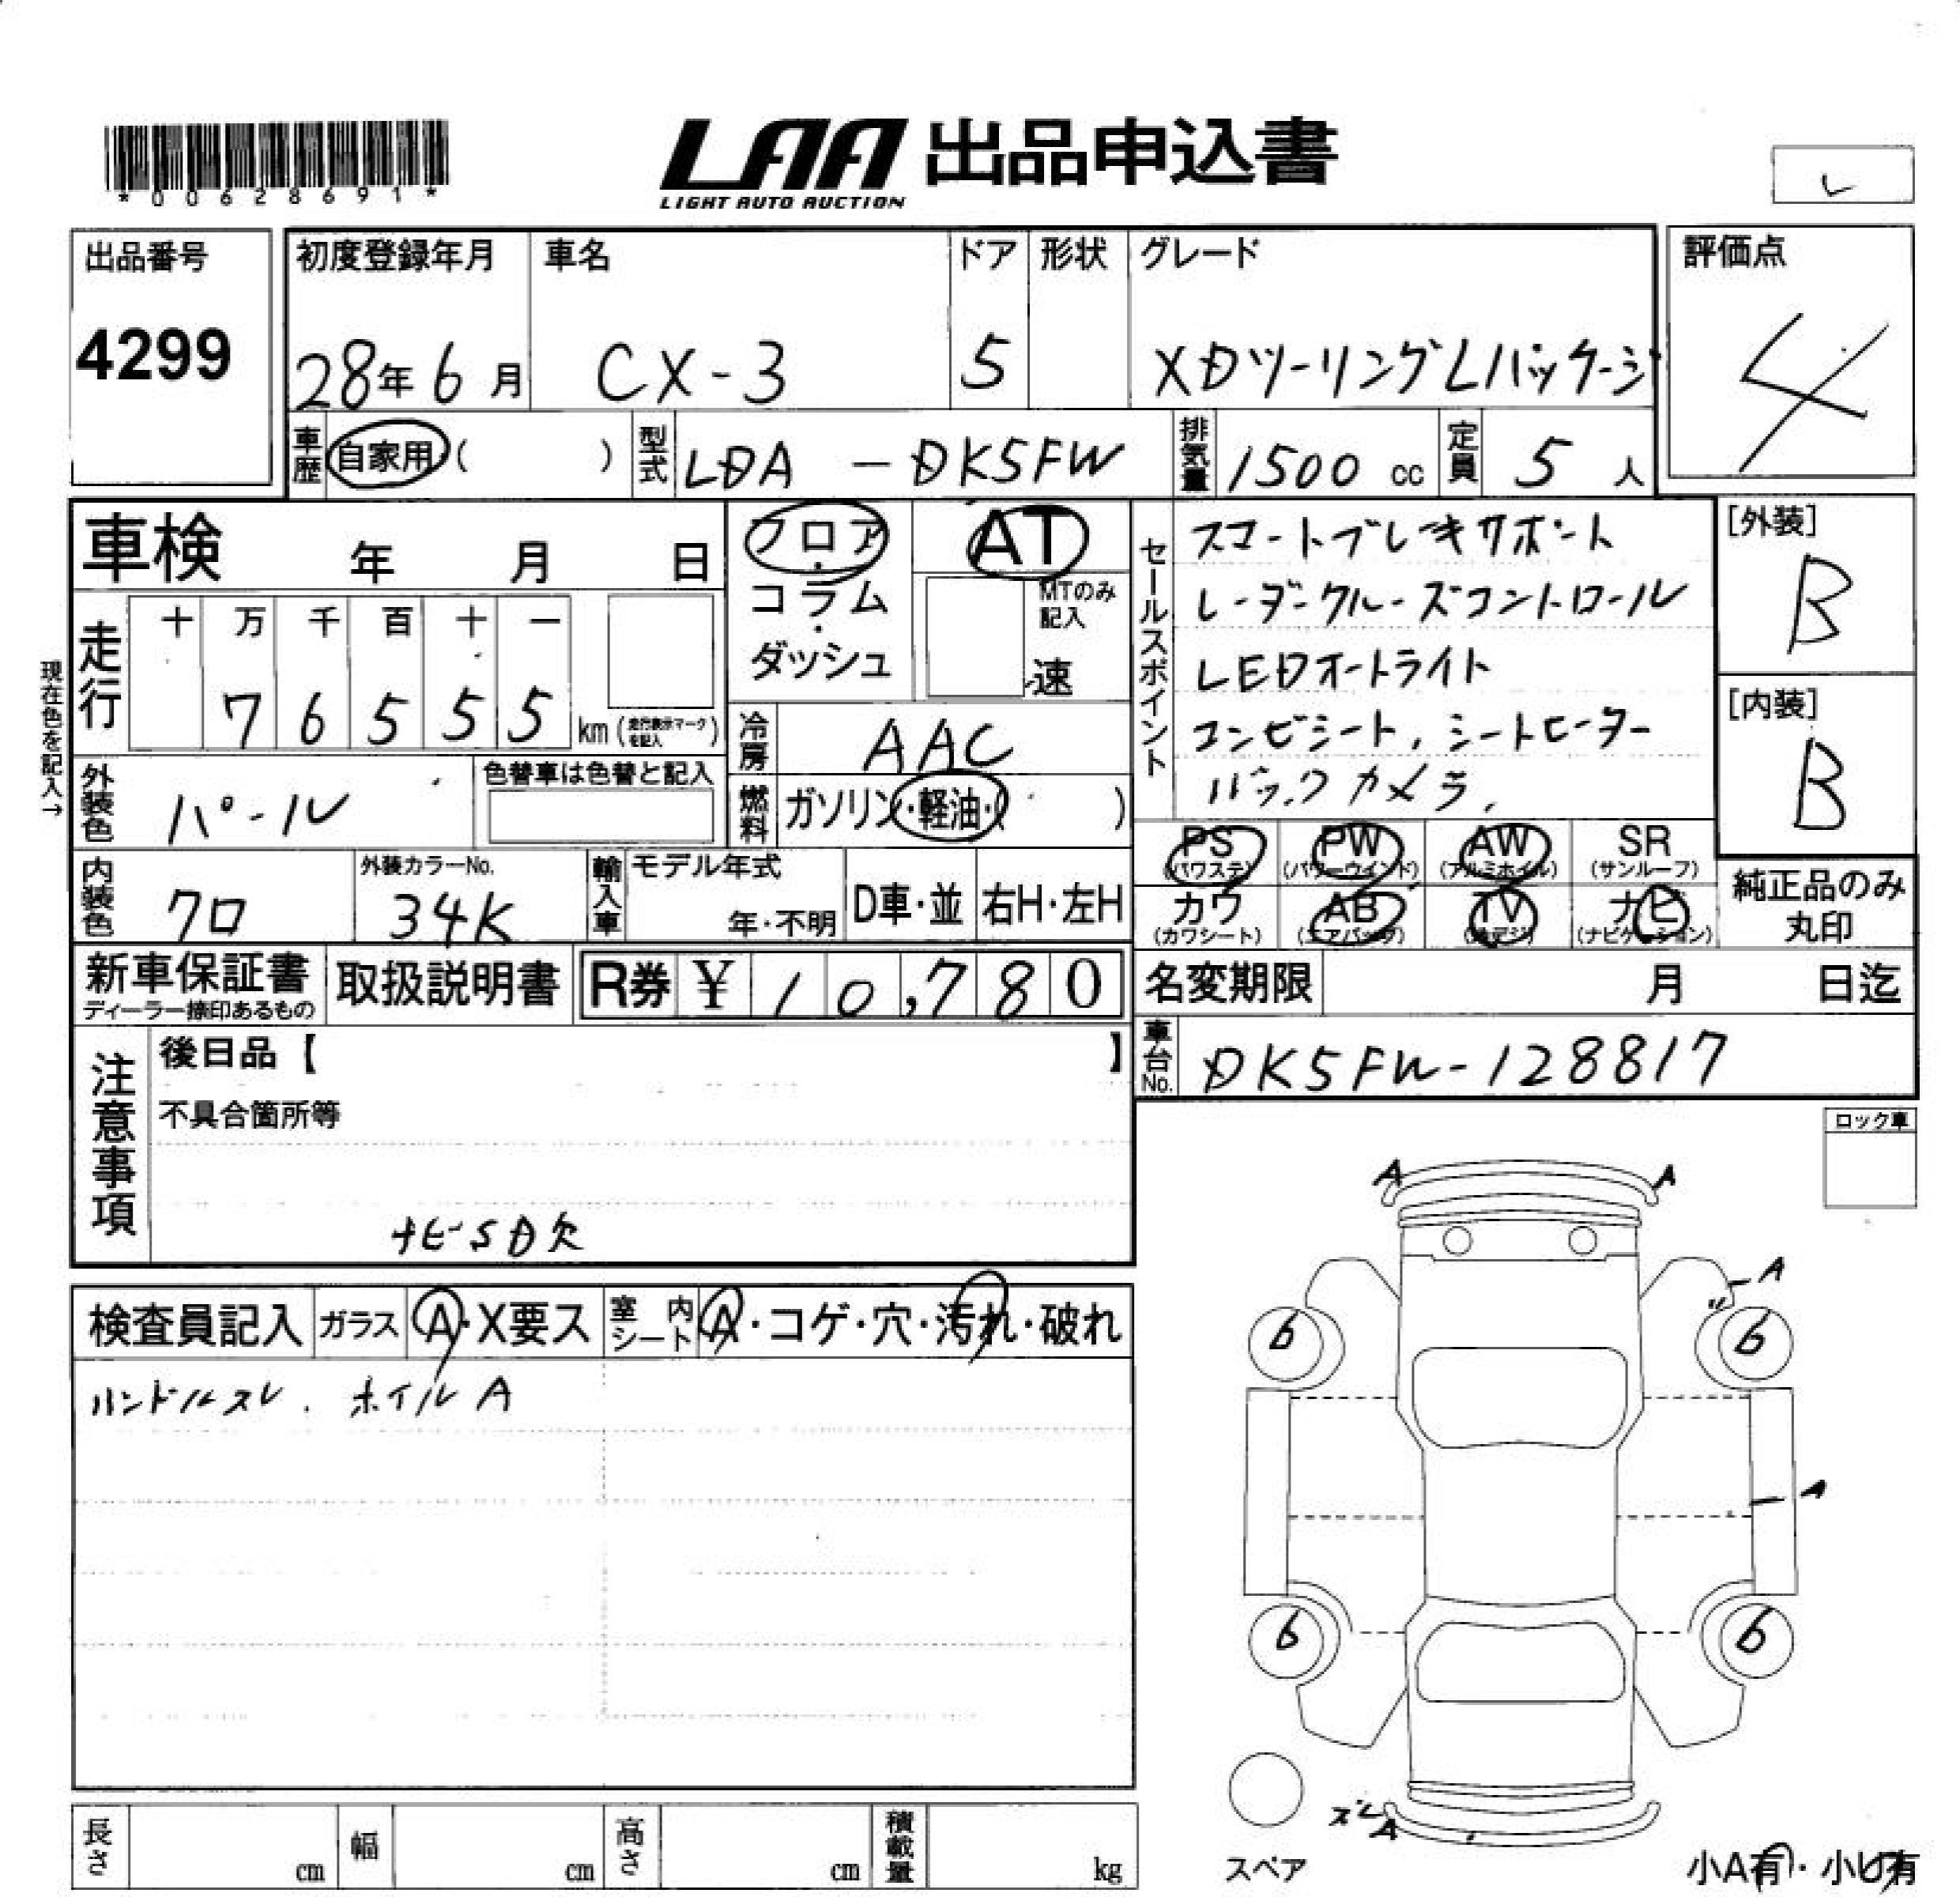 *00628691*
LAA 出品申込書
LIGHT AUTO AUCTION
レ
出品番号
4299
初度登録年月
28年6月
車名
CX-3
ドア
5
形状
グレード
XDツーリングLパッケージ
評価点
4
車歴
自家用 ( )
型式
LDA - DK5FW
排気量
1500 cc
定員
5 人
車検 年 月 日
フロア・
コラム・
ダッシュ
AT
MTのみ
記入
速
セールスポイント
スマートブレーキサポート
レーダークルーズコントロール
LEDオートライト
コンビシート, シートヒーター
バックカメラ,
[外装]
B
[内装]
B
現在色を記入→
走行
十 万 千 百 十 一
7 6 5 5 5 km (走行表示マークを記入)
冷房
AAC
外装色
パール
色替車は色替と記入
燃料
ガソリン・軽油・( )
PS
(パワステ)
PW
(パワーウインド)
AW
(アルミホイル)
SR
(サンルーフ)
カワ
(カワシート)
AB
(エアバッグ)
TV
(地デジ)
ナビ
(ナビゲーション)
純正品のみ
丸印
内装色
クロ
外装カラーNo.
34K
輸入車
モデル年式
年・不明
D車・並
右H・左H
新車保証書
ディーラー捺印あるもの
取扱説明書
R券 ¥ 10,780
名変期限 月 日迄
車台No.
DK5FW-128817
注意事項
後日品【 】
不具合箇所等
ナビSD欠
ロック車
検査員記入
ガラス
A・X要ス
室内シート
A・コゲ・穴・汚れ・破れ
ハンドルスレ. ホイルA
A
A
A
〃
6
6
A
6
6
スレ
A
スペア
小A有・小U有
長さ cm
幅 cm
高さ cm
積載量 kg